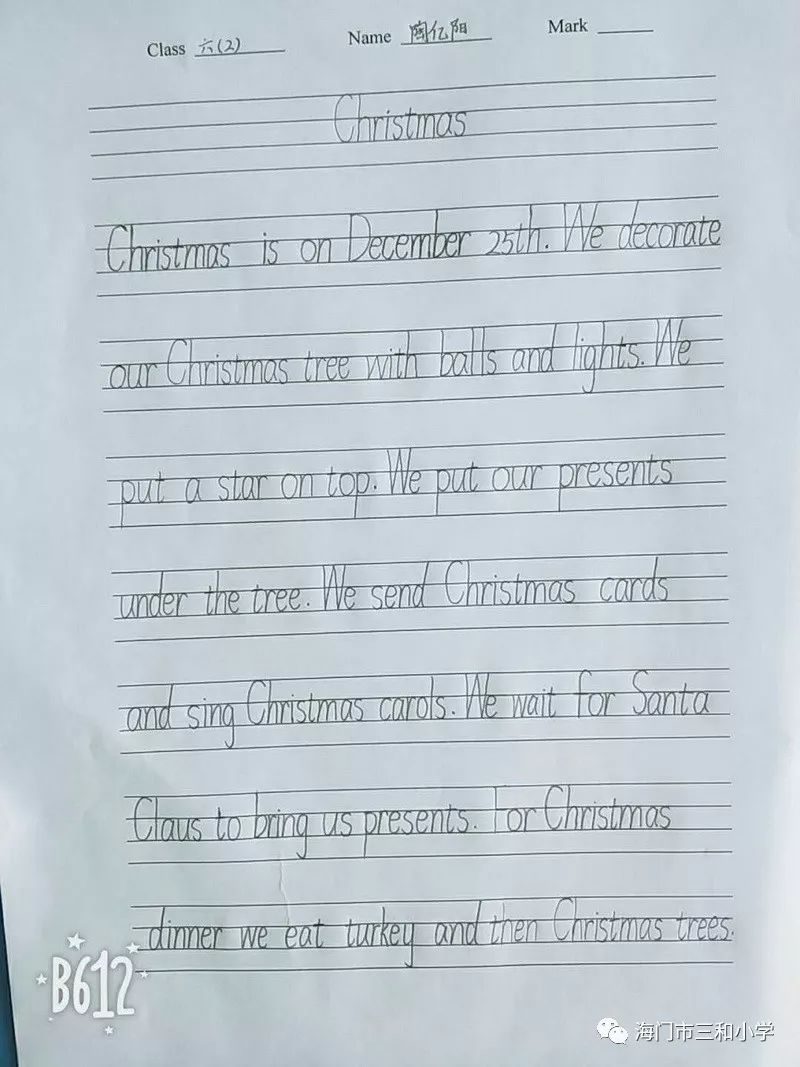 Class 六(2) Name 陶亿阳 Mark
Christmas
Christmas is on December 25th. We decorate
our Christmas tree with balls and lights. We
put a star on top. We put our presents
under the tree. We send Christmas cards
and sing Christmas carols. We wait for Santa
Claus to bring us presents. For Christmas
dinner we eat turkey and then Christmas trees.
B612
海门市三和小学